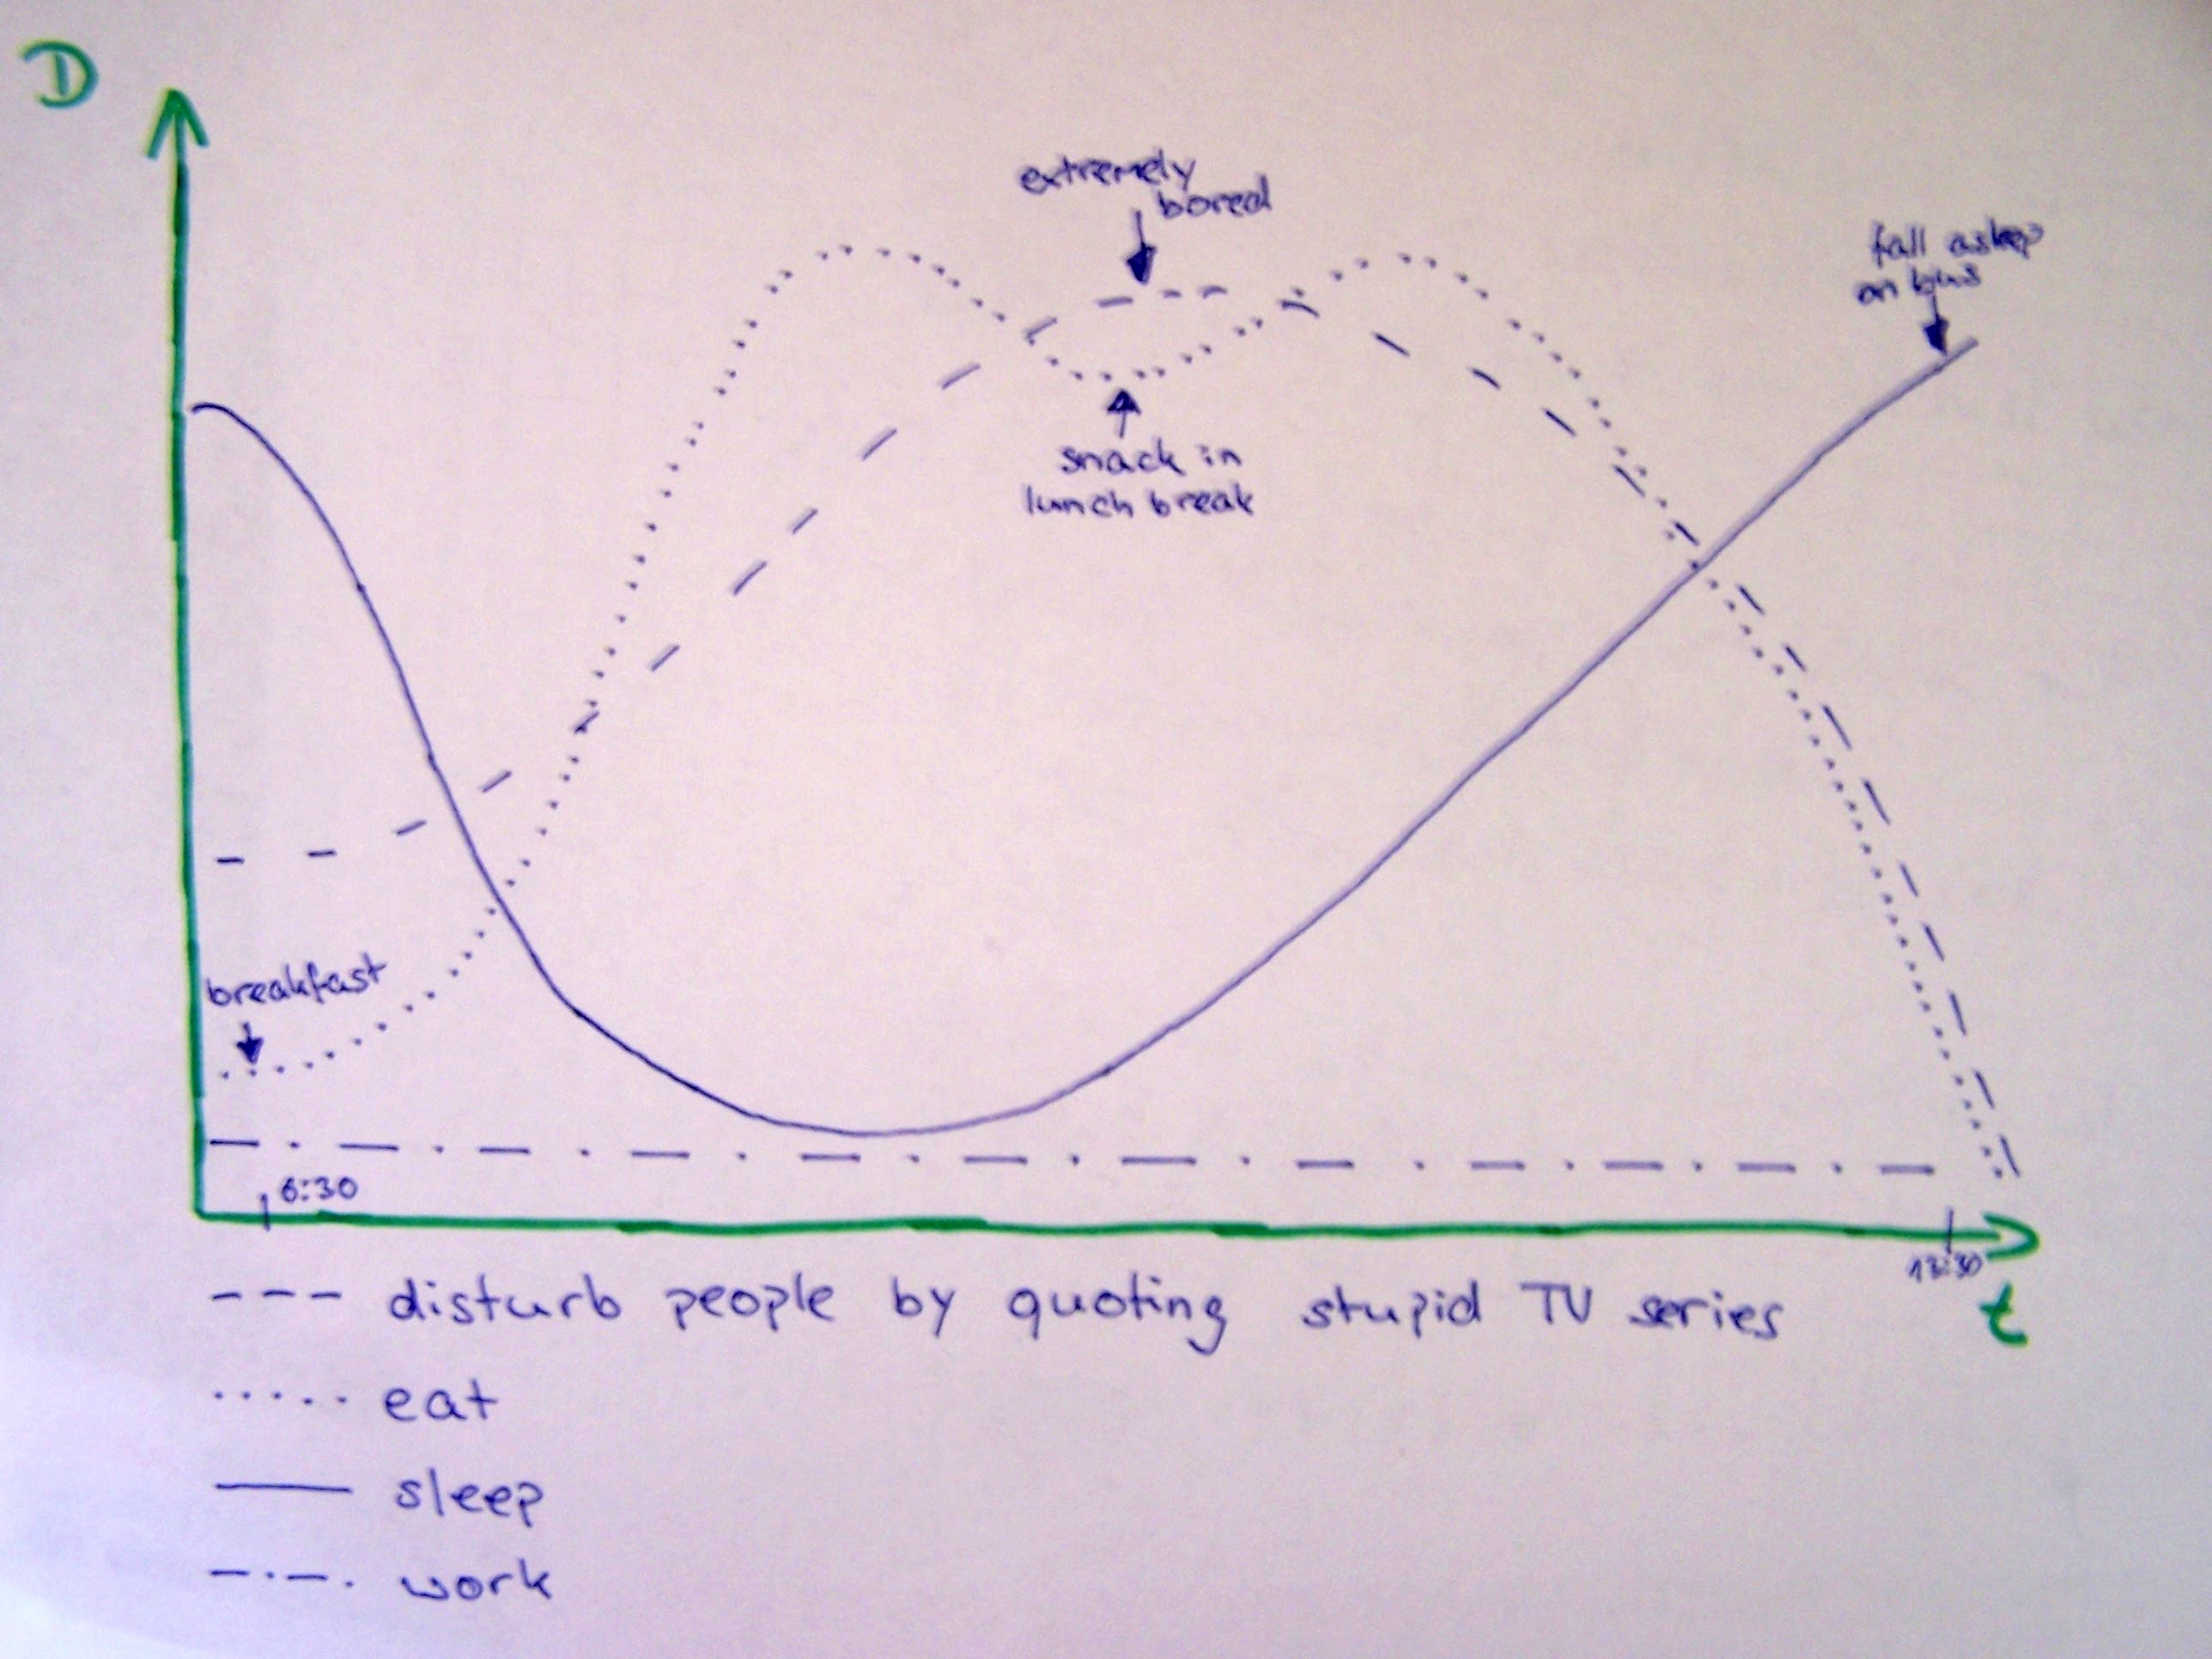 D
extremely
bored
fall asleep
on bus
snack in
lunch break
breakfast
6:30
13:30
t
disturb people by quoting stupid TV series
eat
sleep
work